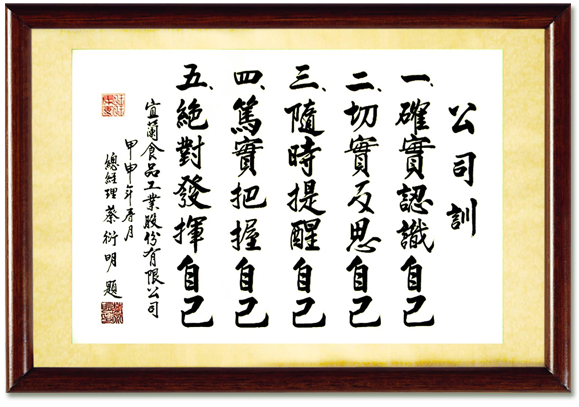 公司訓
一、確實認識自己
二、切實反思自己
三、隨時提醒自己
四、篤實把握自己
五、絕對發揮自己
宜蘭食品工業股份有限公司
甲申年 月
總經理蔡衍明 題